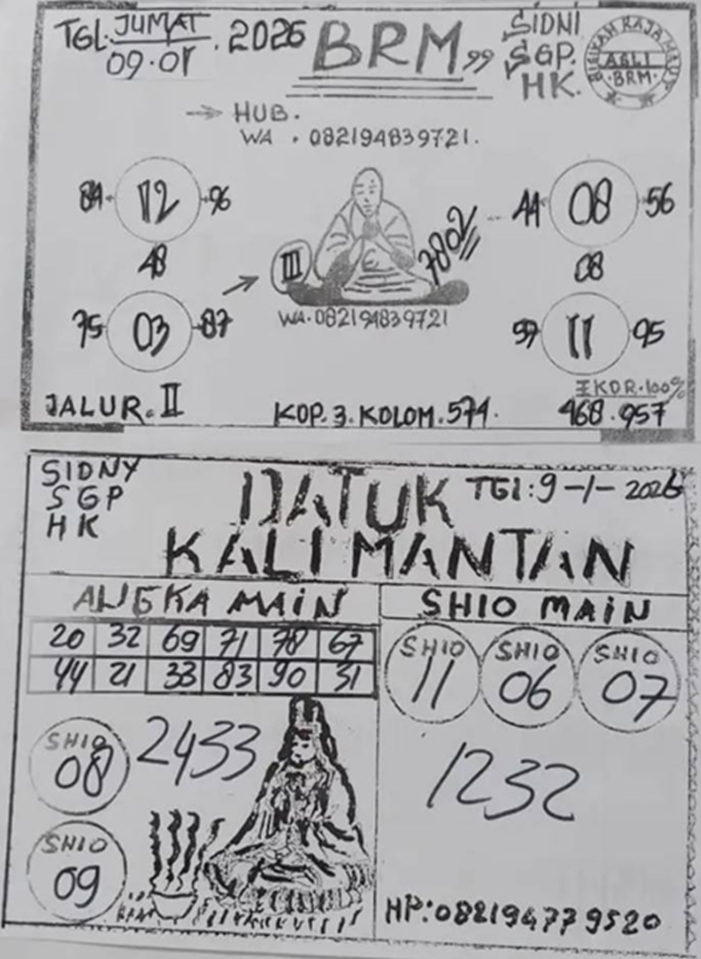 TGL. JUMAT 09.01. 2026
BRM 99
SIDNI
SGP.
HK.
BISIKAN RAJA MAUT
ASLI
BRM
→ HUB.
WA . 082194839721.
84 12 96
48
75 03 87
III
7802
WA. 082194839721
44 08 56
08
59 11 95
JALUR. II
KOP. 3. KOLOM. 574.
EKOR. 100%
468. 957
SIDNY
SGP
HK
DATUK
KALIMANTAN
TGl: 9-1-2026
ANGKA MAIN
20 32 69 71 78 67
44 21 33 83 90 31
SHIO 08
2433
SHIO 09
SHIO MAIN
SHIO 11
SHIO 06
SHIO 07
1232
HP: 082194779520